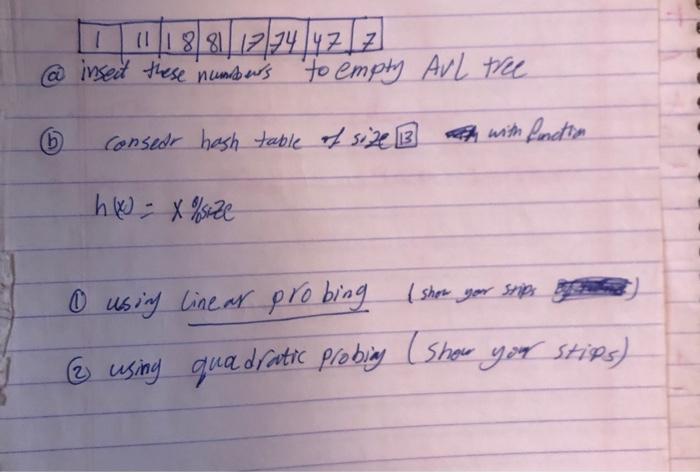 1 11 18 81 17 74 47 7
ⓐ insert these numbers to empty AVL tree
ⓑ consedr hash table of size 13 with function
h(x) = x % size
① using linear probing (show your steps)
② using quadratic probing (show your stips)